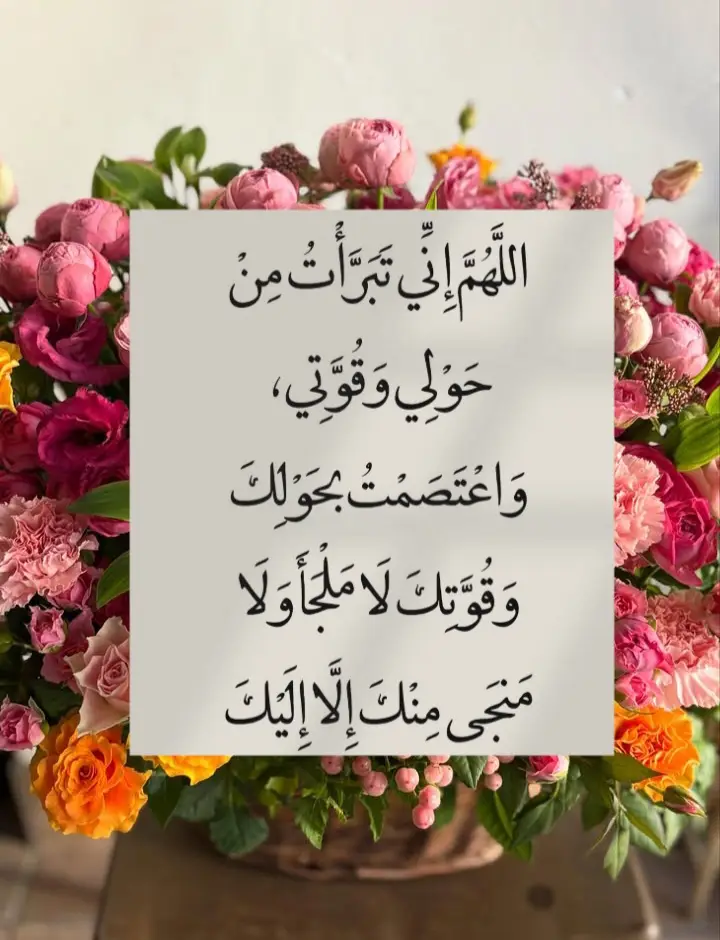 اللَّهُمَّ إِنِّي تَبَرَّأْتُ مِنْ
حَوْلِي وَقُوَّتِي،
وَاعْتَصَمْتُ بِحَوْلِكَ
وَقُوَّتِكَ لَا مَلْجَأَ وَلَا
مَنجَى مِنْكَ إِلَّا إِلَيْكَ